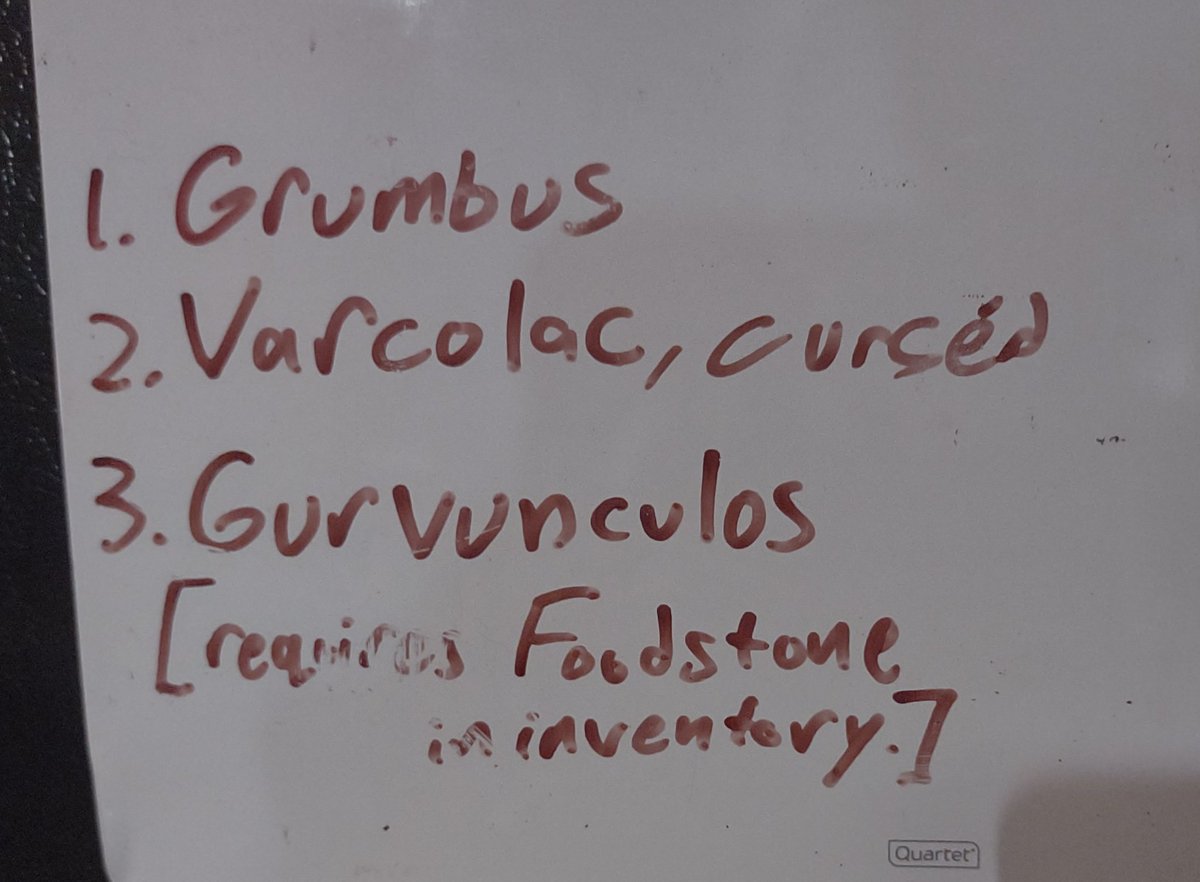 1. Grumbus
2. Varcolac, curséd
3. Gurvunculos
[requires Foodstone
in inventory.]
Quartet